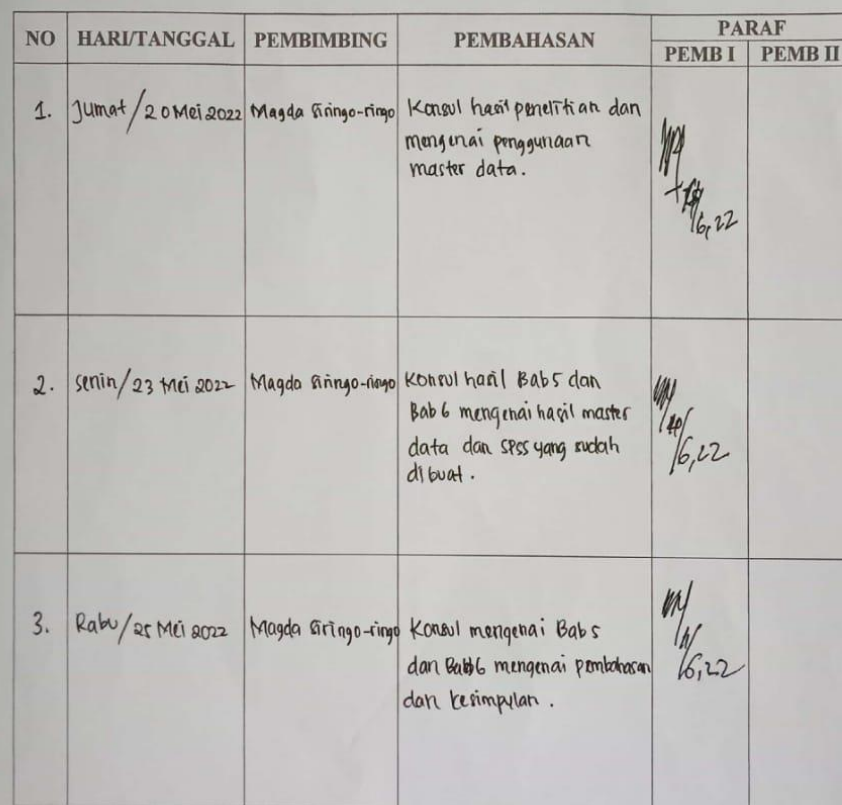 NO HARI/TANGGAL PEMBIMBING PEMBAHASAN PARAF
PEMB I PEMB II
1. Jumat/20 Mei 2022 Magda Siringo-ringo Konsul hasil penelitian dan
mengenai penggunaan
master data.
6,22
2. Senin/23 Mei 2022 Magda Siringo-ringo Konsul hasil Bab 5 dan
Bab 6 mengenai hasil master
data dan SPSS yang sudah
dibuat.
6,22
3. Rabu/25 Mei 2022 Magda Siringo-ringo Konsul mengenai Bab 5
dan Bab 6 mengenai pembahasan
dan kesimpulan.
6,22